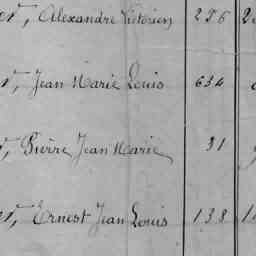 et, Alexandre Victorien 296
et, Jean Marie Louis 634
et, Pierre Jean Marie 31
et, Ernest Jean Louis 138